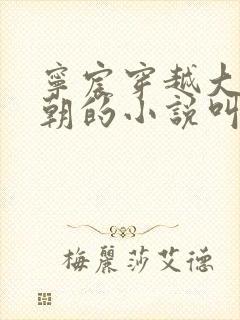 寧宸穿越大
朝的小說叫
梅麗莎艾德